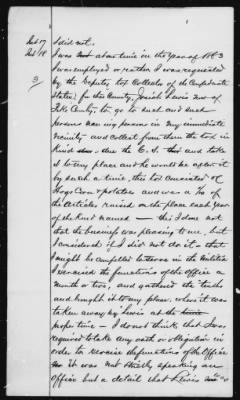 Ans 17 I did not.
Ans 18 I was at a time in the year of 1863
3 I was employed or rather I was requested
by the Deputy tax Collector of the Confederate
States, for this County, Josiah Lewis now of
Pike County, to go to such and such
persons naming persons in my immediate
vicinity and collect from them the tax in
Kind due the C.S. and take
it to my place and he would be after it
by such a time, this tax consisted of
Hogs Corn & potatoes and was a 1/10 of
the articles raised on the place each year
of the kind named — this I done not
that the business was pleasing to me, but
I considered if I did not do it — that
I might be compelled to serve in the Militia
I exercised the functions of the office a
month or two, and gathered the tenths
and brought it to my place, where it was
taken away by Lewis at the
proper time — I do not think that I was
required to take any oath or obligation in
order to exercise the functions of the Office
It was not strictly speaking an
Office but a detail that Lewis